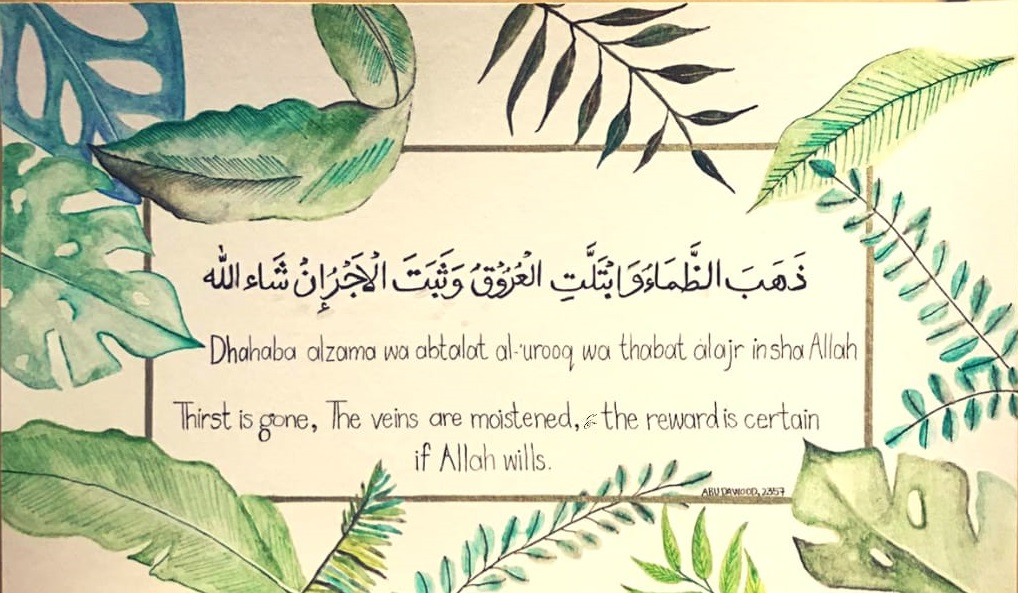 ذَهَبَ الظَّمَاءُ وَابْتَلَّتِ الْعُرُوْقُ وَثَبَتَ الْاَجْرُ إِنْ شَاءَ اللّٰه
Dhahaba alzama wa abtalat al-'urooq wa thabat alajr insha Allah
Thirst is gone, The veins are moistened, & the reward is certain
if Allah wills.
ABU DAWOOD, 2357